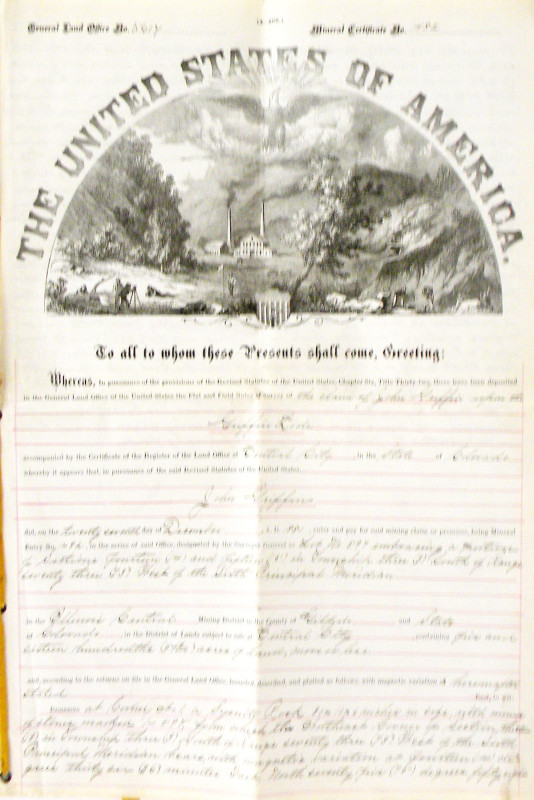 General Land Office No. 5617
Mineral Certificate No. 486
THE UNITED STATES OF AMERICA.
To all to whom these Presents shall come, Greeting:
Whereas, In pursuance of the provisions of the Revised Statutes of the United States, Chapter Six, Title Thirty-two, there have been deposited
in the General Land Office of the United States the Plat and Field Notes of survey of the claim of John upon the
Lode
accompanied by the Certificate of the Register of the Land Office at Central City in the State of Colorado
whereby it appears that, in pursuance of the said Revised Statutes of the United States,
John
did, on the twenty seventh day of December A. D. enter and pay for said mining claim or premises, being Mineral
Entry No. 486, in the series of said Office, designated by the Surveyor General as Lot No. 597 embracing a portion
of Sections fourteen (14) and fifteen (15) in Township three (3) South of Range
seventy three (73) West of the Sixth Principal Meridian
in the Illinois Central Mining District in the County of Gilpin and State
of Colorado in the District of Lands subject to sale at Central City containing five and
sixteen hundredths acres of land, more or less
and, according to the returns on file in the General Land Office, bounded, described, and platted as follows, with magnetic variation at hereinafter
stated East, to wit:
Beginning at Corner No. 1 a Rock in size, with
of stone marked from which the Corner of section
in Township three (3) South of Range seventy three (73) West of the Sixth
Principal Meridian bears, with magnetic variation at fourteen (14) de-
grees thirty six (36) minutes East, North seventy five (75) degrees fifty